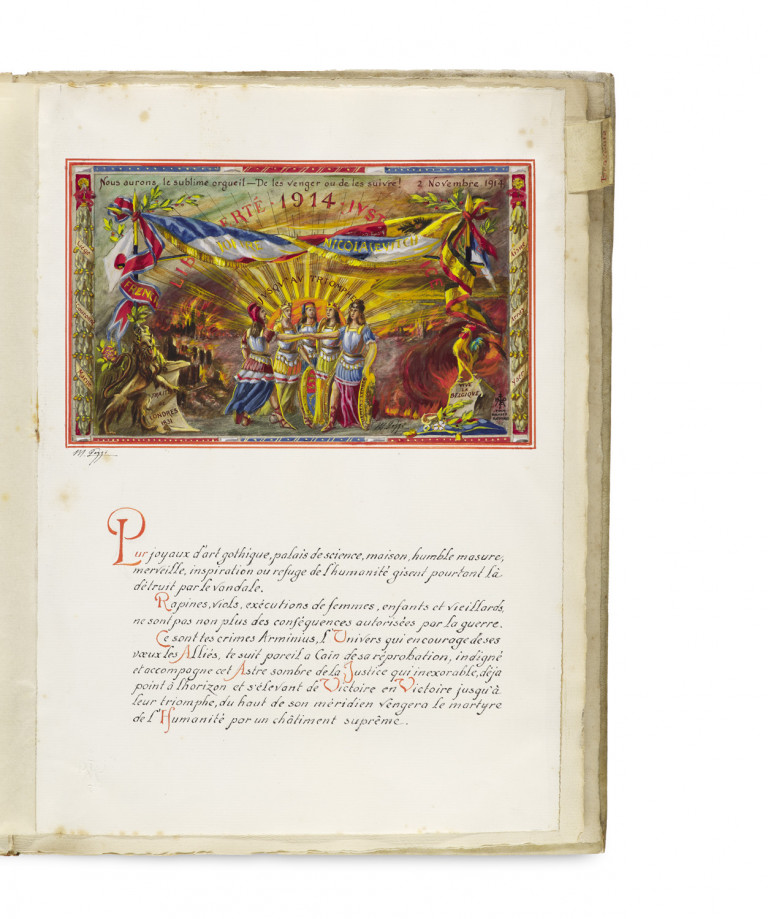 Nous aurons, le sublime orgueil—De les venger ou de les suivre! 2 Novembre 1914
LIBERTÉ 1914 JVSTICE
JOFFRE NICOLAIEVITCH
JUSQU'AU TRIOMPHE
FRENCH
LONDRES
VIVE
LA
BELGIQUE
Pur joyaux d'art gothique, palais de science, maison, humble masure,
merveille, inspiration ou refuge de l'humanité gisent pourtant là
détruit par le vandale.
Rapines, viols, exécutions de femmes, enfants et vieillards,
ne sont pas non plus des conséquences autorisées par la guerre.
Ce sont tes crimes Arminius, l'Univers qui encourage de ses
vœux les Alliés, te suit pareil a Cain de sa réprobation, indigné
et accompagne cet Astre sombre de la Justice qui inexorable, déja
point à l'horizon et s'élevant de Victoire en Victoire jusqu'à
leur triomphe, du haut de son méridien vengera le martyre
de l'Humanité par un châtiment suprême...